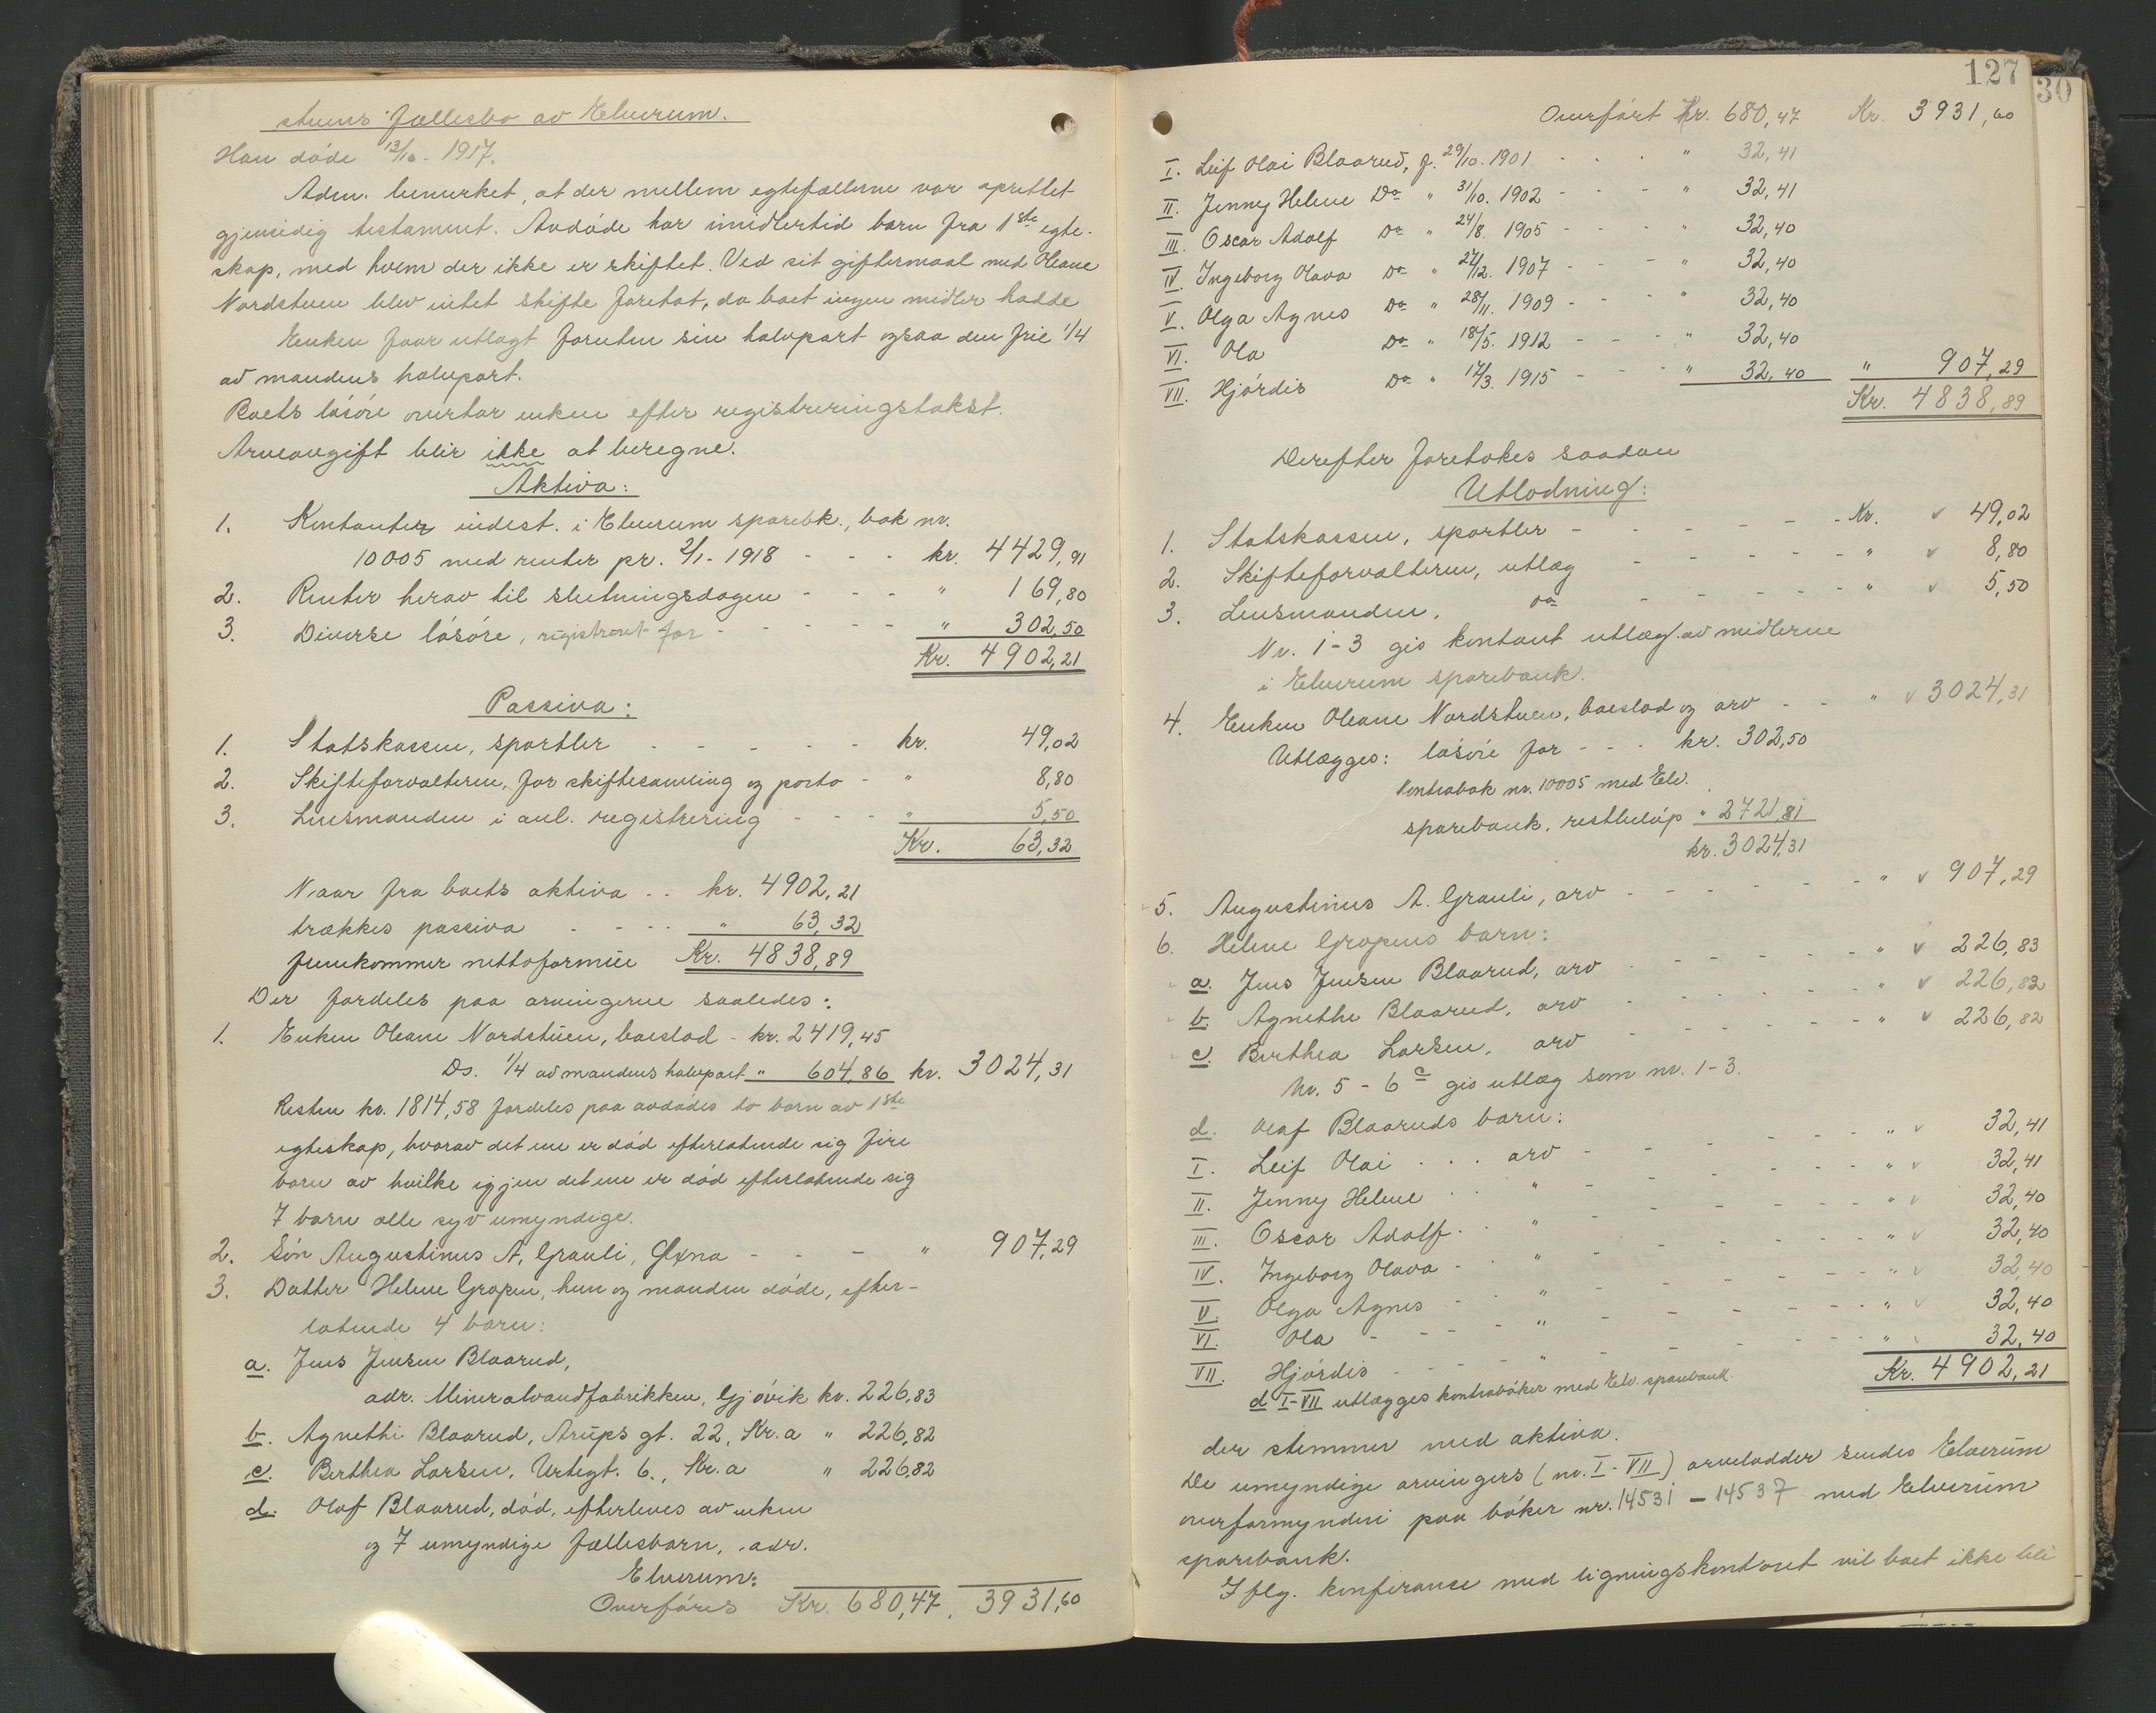 stuens fællesbo av Elverum.
Han døde 13/10 - 1917.
Adm. bemerket, at der mellem egtefællerne var oprettet
gjensidig testament. Avdøde har imidlertid barn fra 1ste egte-
skap, med hvem der ikke er skiftet. Ved sit giftermaal med Oleane
Nordstuen blev intet skifte foretat, da boet ingen midler hadde
Enken faar utlagt foruten sin halvpart ogsaa den frie 1/4
av mandens halvpart.
Boets løsøre overtar enken efter registreringstakst.
Arveavgift blir ikke at beregne.
Aktiva:
1. Kontanter indest. i Elverum sparebk., bok nr.
10005 med renter pr. 2/1 - 1918 - - - kr. 4429,91
2. Renter herav til slutningsdagen - - - " 169,80
3. Diverse løsøre, registrert for - - - - - " 302,50
Kr. 4902,21
Passiva:
1. Statskassen, sportler - - - - - kr. 49,02
2. Skifteforvalteren, for skiftesamling og porto - " 8,80
3. Lensmanden i anl. registrering - - - " 5,50
Kr. 63,32
Naar fra boets aktiva .. kr. 4902,21
trækkes passiva - - - - " 63,32
fremkommer nettoformue Kr. 4838,89
Der fordeles paa arvingerne saaledes:
1. Enken Oleane Nordstuen, boeslod - kr. 2419,45
Ds. 1/4 av mandens halvpart " 604,86 kr. 3024,31
Resten kr. 1814,58 fordeles paa avdødes to barn av 1ste
egteskap, hvorav det ene er død efterlatende sig fire
barn av hvilke igjen det ene er død efterlatende sig
7 barn alle syv umyndige.
2. Søn Augustinus A. Grauli, Gløna - - - " 907,29
3. Datter Helene Gropen, hun og manden døde, efter-
latende 4 barn:
a. Jens Jensen Blaarud,
adr. Mineralvandfabrikken, Gjøvik kr. 226,83
b. Agnethe Blaarud, Arups gt. 22, Kr.a " 226,82
c. Berthea Larsen, Urtegt. 6., Kr.a " 226,82
d. Olaf Blaarud, død, efterleves av enken
og 7 umyndige fællesbarn, adr.
Elverum:
Overføres Kr. 680,47. 3931,60
127
30
Overført Kr. 680,47 Kr. 3931,60
I. Leif Olai Blaarud, f. 29/10. 1901 - - - " 32,41
II. Jenny Helene Do " 31/10. 1902 - - - " 32,41
III. Oscar Adolf Do " 24/8. 1905 - - - " 32,40
IV. Ingeborg Olava Do " 24/12. 1907 - - - " 32,40
V. Olga Agnes Do " 28/11. 1909 - - - " 32,40
VI. Ola Do " 18/5. 1912 - - - " 32,40
VII. Hjørdis Do " 17/3. 1915 - - - " 32,40 " 907,29
Kr. 4838,89
Derefter foretokes saadan
Utlodning:
1. Statskassen, sportler - - - - - - Kr. 49,02
2. Skifteforvalteren, utlæg - - - - - " 8,80
3. Lensmanden, Do - - - - - " 5,50
Nr. 1-3 gis kontant utlæg av midlerne
i Elverum sparebank.
4. Enken Oleane Nordstuen, boeslod og arv - - " 3024,31
Utlægges: løsøre for - - - kr. 302,50
Kontrabok nr. 10005 med Elv.
sparebank, restbeløp " 2721,81
kr. 3024,31
5. Augustinus A. Grauli, arv - - - - - - " 907,29
6. Helene Gropens barn:
a. Jens Jensen Blaarud, arv - - - - - " 226,83
b. Agnethe Blaarud, arv - - - - - " 226,82
c. Berthea Larsen, arv - - - - - " 226,82
Nr. 5 - 6c gis utlæg som nr. 1-3.
d. Olaf Blaaruds barn:
I. Leif Olai . . . arv - - - - - " 32,41
II. Jenny Helene . . " - - - - - " 32,41
III. Oscar Adolf . . " - - - - - " 32,40
IV. Ingeborg Olava - . " - - - - - " 32,40
V. Olga Agnes - . " - - - - - " 32,40
VI. Ola - - - - " - - - - - " 32,40
VII. Hjørdis - - - - " - - - " 32,40
d I-VII utlægges kontrabøker med Elv. sparebank. Kr. 4902,21
der stemmer med aktiva.
De umyndige arvingers (nr. I-VII) arvelodder sendes Elverum
overformynderi paa bøker nr. 14531 - 14537 med Elverum
sparebank.
Iflg. konferance med ligningskontoret vil boet ikke bli